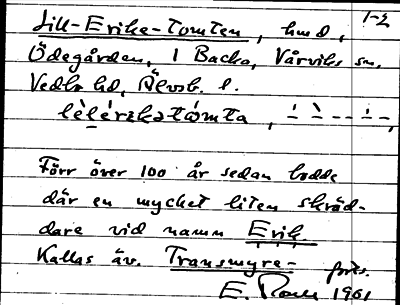 1-2
Lill-Erike-Tomten, hmd,
Ödegården, 1 Backa, Vårviks sn.
Vedbo hd, Älvsb. l.
Förr över 100 år sedan bodde
där en mycket liten skräd-
dare vid namn Erik.
Kallas äv. Transmyre-
forts.
E. 1961